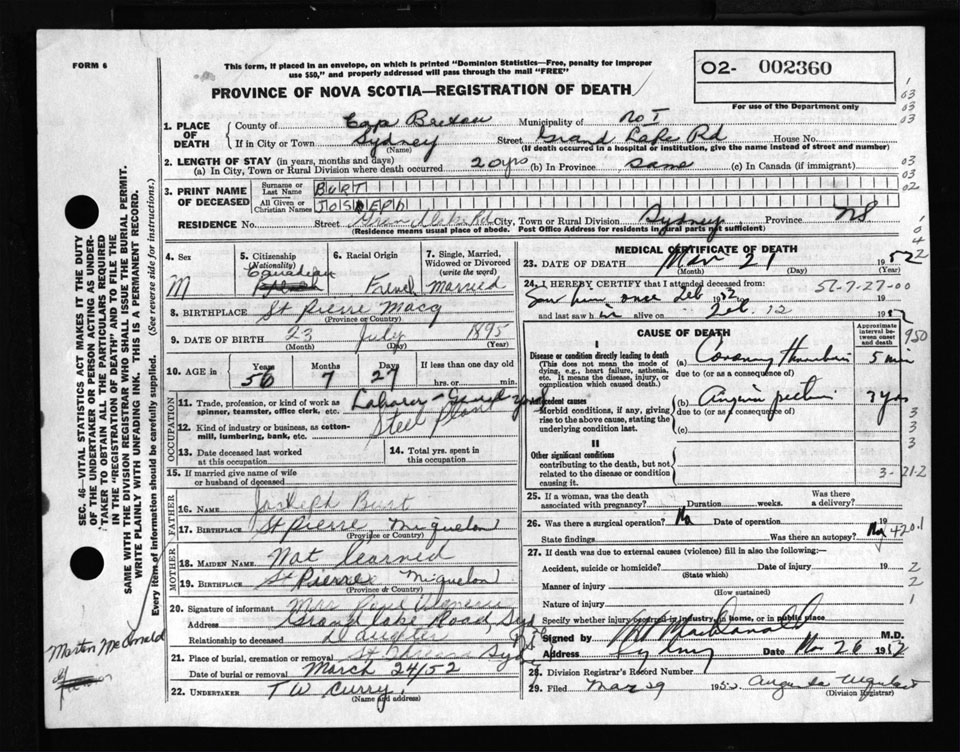 FORM 6
This form, if placed in an envelope, on which is printed "Dominion Statistics—Free, penalty for improper
use $50," and properly addressed will pass through the mail "FREE"
O2- 002360
For use of the Department only
PROVINCE OF NOVA SCOTIA—REGISTRATION OF DEATH
1. PLACE OF DEATH
County of Cap Breton Municipality of No I
If in City or Town Sydney Street Grand Lake Rd House No.
(Name) (If death occurred in a hospital or institution, give the name instead of street and number)
2. LENGTH OF STAY (in years, months and days)
(a) In City, Town or Rural Division where death occurred 20 yrs (b) In Province same (c) In Canada (if immigrant)
3. PRINT NAME OF DECEASED
Surname or Last Name BURT
All Given or Christian Names JOSEPH
RESIDENCE No. Street Grand Lake Rd City, Town or Rural Division Sydney Province NS
(Residence means usual place of abode. Post Office Address for residents in rural parts not sufficient)
4. Sex M
5. Citizenship (Nationality) Canadian
6. Racial Origin French
7. Single, Married, Widowed or Divorced (write the word) Married
8. BIRTHPLACE St Pierre Macq
(Province or Country)
9. DATE OF BIRTH 23 July 1895
(Month) (Day) (Year)
10. AGE in Years 56 Months 7 Days 27 If less than one day
hrs. or min.
OCCUPATION
11. Trade, profession, or kind of work as
spinner, teamster, office clerk, etc. Laborer -
12. Kind of industry or business, as cotton-
mill, lumbering, bank, etc. Steel Plant
13. Date deceased last worked
at this occupation
14. Total yrs. spent in
this occupation
15. If married give name of wife
or husband of deceased
FATHER
16. NAME Joseph Burt
17. BIRTHPLACE St Pierre Miquelon
(Province or Country)
MOTHER
18. MAIDEN NAME Not learned
19. BIRTHPLACE St Pierre Miquelon
(Province or Country)
20. Signature of informant Mrs Rose
Address Grand Lake Road, Syd
Relationship to deceased Daughter
21. Place of burial, cremation or removal St
Date of burial or removal March 24/52
22. UNDERTAKER T W Curry
(Name and address)
MEDICAL CERTIFICATE OF DEATH
23. DATE OF DEATH Mar 21 1952
(Month) (Day) (Year)
24. I HEREBY CERTIFY that I attended deceased from: 56-7-27-00
Saw him once Feb 19
and last saw him alive on Feb. 12 1952
CAUSE OF DEATH
Approximate interval between onset and death
I
Disease or condition directly leading to death
(This does not mean the mode of dying, e.g., heart failure, asthenia, etc. It means the disease, injury, or complication which caused death.)
(a) Coronary Thrombosis 5 min
due to (or as a consequence of)
Antecedent causes
Morbid conditions, if any, giving rise to the above cause, stating the underlying condition last.
(b) Angina pectoris yrs
due to (or as a consequence of)
(c)
II
Other significant conditions
contributing to the death, but not related to the disease or condition causing it.
3-21-2
25. If a woman, was the death
associated with pregnancy? Duration weeks. Was there
a delivery?
26. Was there a surgical operation? No Date of operation 19
State findings Was there an autopsy? No
420.1
27. If death was due to external causes (violence) fill in also the following:—
Accident, suicide or homicide? Date of injury 19
(State which)
Manner of injury
(How sustained)
Nature of injury
Specify whether injury occurred in industry, in home, or in public place
Signed by M MacDonald M.D.
Address Sydney Date Mar 26 1952
28. Division Registrar's Record Number
29. Filed Mar 29 1952 Angus
(Division Registrar)
SEC. 46—VITAL STATISTICS ACT MAKES IT THE DUTY
OF THE UNDERTAKER OR PERSON ACTING AS UNDER-
TAKER TO OBTAIN ALL THE PARTICULARS REQUIRED
IN THE "REGISTRATION OF DEATH" AND TO FILE THE
SAME WITH THE DIVISION REGISTRAR WHO SHALL ISSUE THE BURIAL PERMIT.
WRITE PLAINLY WITH UNFADING INK. THIS IS A PERMANENT RECORD.
Every item of information should be carefully supplied. (See reverse side for instructions.)
Martin McDonald